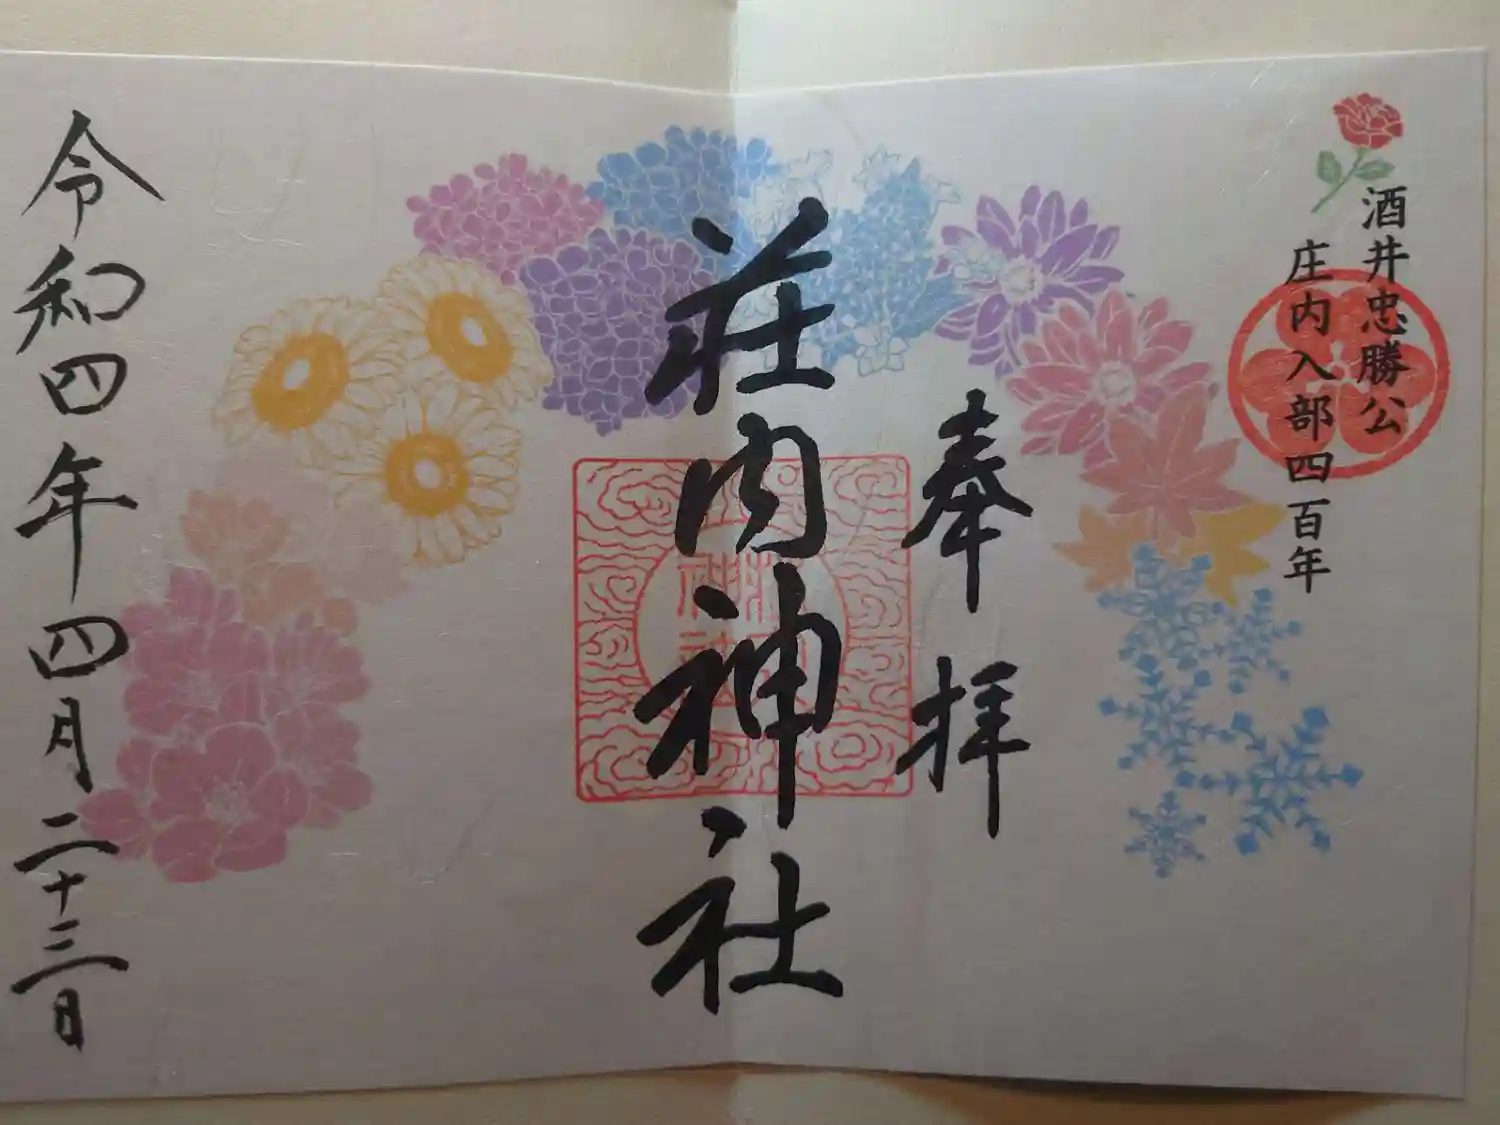 酒井忠勝公
庄内入部四百年
奉拝
荘内神社
令和四年四月二十三日